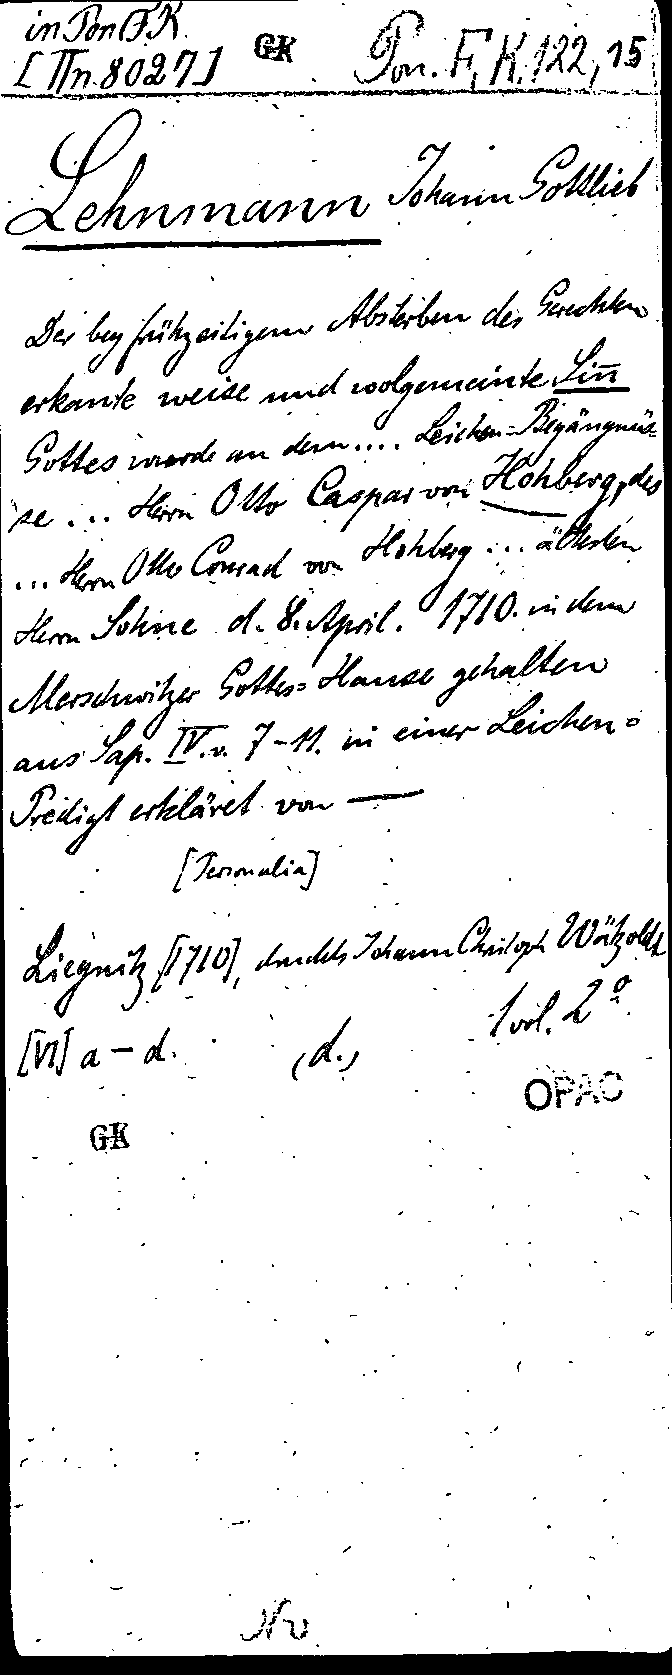 in Pon F. K.
[IIn. 8027] GK Pon. F. K. 122, 15
Lehnmann Johann Gottlieb
Der bey frühzeitigem Absterben des Gerechten
erkante weise und wolgemeinte Siñ
Gottes wurde an dem .... Leichen-Begängnüs-
se ... Herrn Otto Caspar von Hohberg, des
... Herrn Otto Conrad von Hohberg ... ältesten
Herrn Sohne d. 8. April. 1710. in dem
Merschwitzer Gottes=Hause gehalten
aus Sap. IV. v. 7-11. in einer Leichen=
Predigt erkläret von —
[Personalia]
Liegnitz [1710], druckts Johann Christoph Wätzoldt
1 vol. 2º
[VI] a - d. (d.)
OPAC
GK